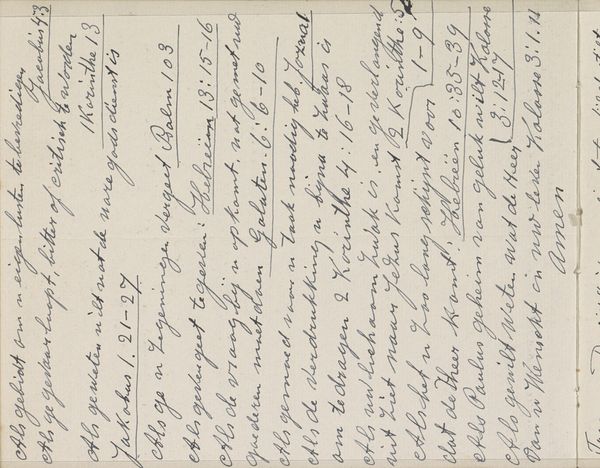 Als ge bidt om uw eigen lusten te bevredigen
Jacobus 4:3
Als ge gevaar loopt, bitter of critisch te worden
1 Korinthe 13
Als ge weten wilt wat de ware godsdienst is
Jakobus 1:21-27
Als ge uw zegeningen vergeet Psalm 103
Als ge vergeet te geven: Hebreën 13:15-16
Als de vraag bij u opkomt, wat ge met uw
goederen moet doen Galaten 6:6-10
Als ge moed voor uw taak noodig heb Jozua 1
Als de verdrukking u bijna te zwaar is
om te dragen 2 Korinthe 4:16-18
Als uw lichaam zwak is en ge verlangend
uit ziet naar Jezus komst 2 Korinthe 5
1-9
Als het u zoo lang schijnt voor
dat de Heer komt: Hebreën 10:35-39
Als Paulus geheim van geluk wilt Kolosse
3:12-17
Als ge wilt weten wat de Heer
van u wenscht in uw leven Kolosse 3:1.11
Amen